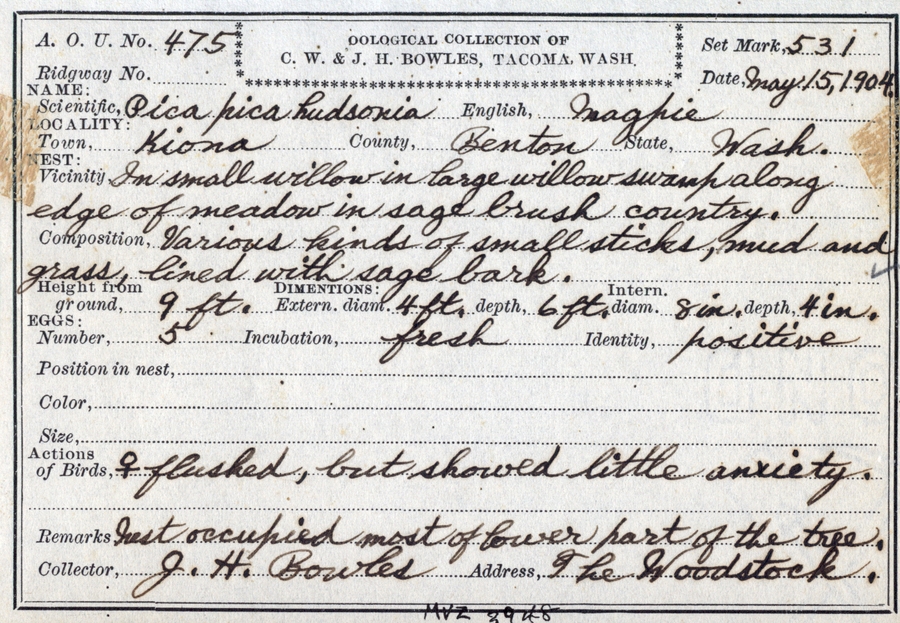 A. O. U. No. 475
OOLOGICAL COLLECTION OF
C. W. & J. H. BOWLES, TACOMA, WASH.
Set Mark, 531
Ridgway No.
Date, May 15, 1904.
NAME:
Scientific, Pica pica hudsonia English, Magpie
LOCALITY:
Town, Kiona County, Benton State, Wash.
NEST:
Vicinity In small willow in large willow swamp along
edge of meadow in sage brush country.
Composition, Various kinds of small sticks, mud and
grass, lined with sage bark.
Height from ground, 9 ft. DIMENTIONS: Extern. diam. 4 ft. depth, 6 ft. Intern. diam. 8 in. depth, 4 in.
EGGS:
Number, 5 Incubation, fresh Identity, positive
Position in nest,
Color,
Size,
Actions
of Birds, ♀ flushed, but showed little anxiety.
Remarks Nest occupied most of lower part of the tree.
Collector, J. H. Bowles Address, The Woodstock.
MVZ 3948